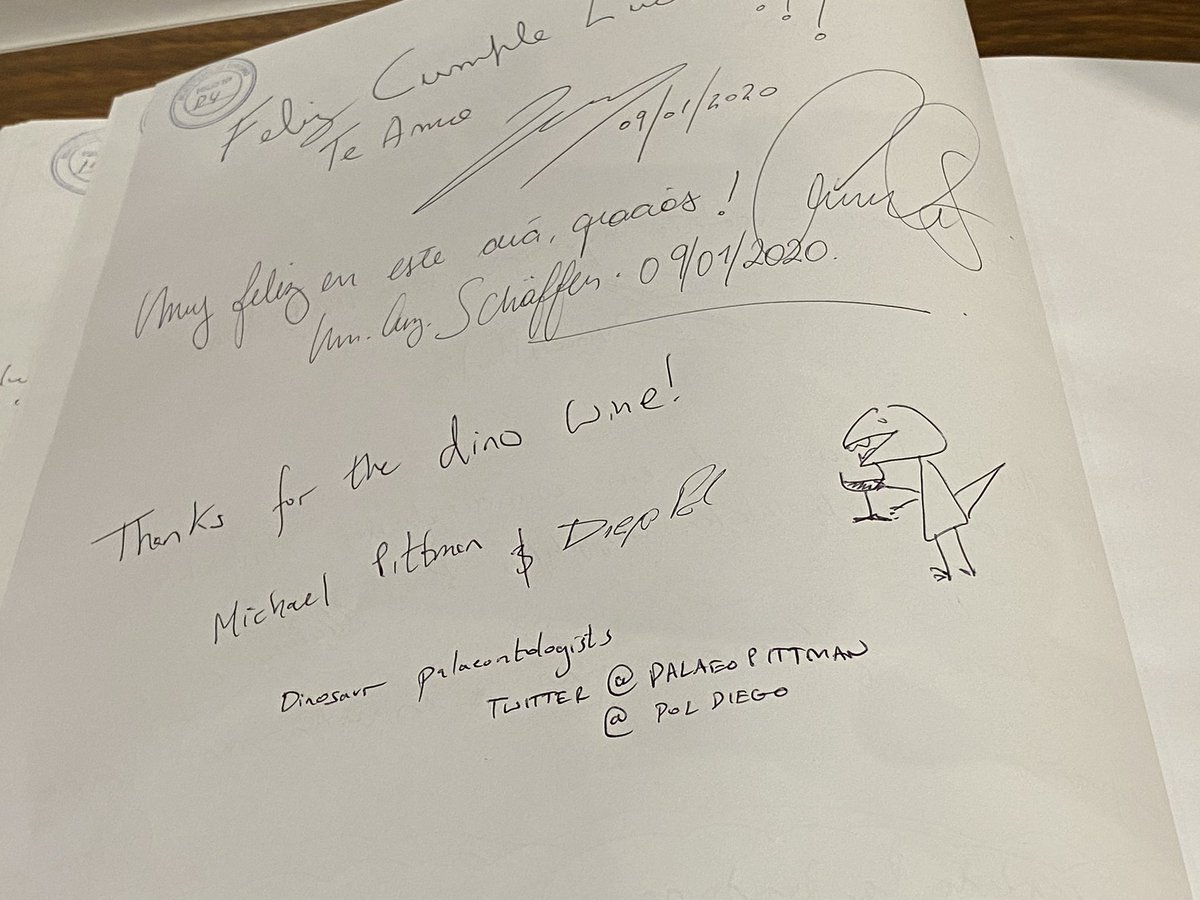 Feliz Cumple
Te Amo
09/01/2020
Muy feliz en este día, gracias!
Schäffer. 09/01/2020.
Thanks for the dino wine!
Michael Pittman & Diego Pol
Dinosaur palaeontologists
TWITTER @ PALAEOPITTMAN
@ POL DIEGO